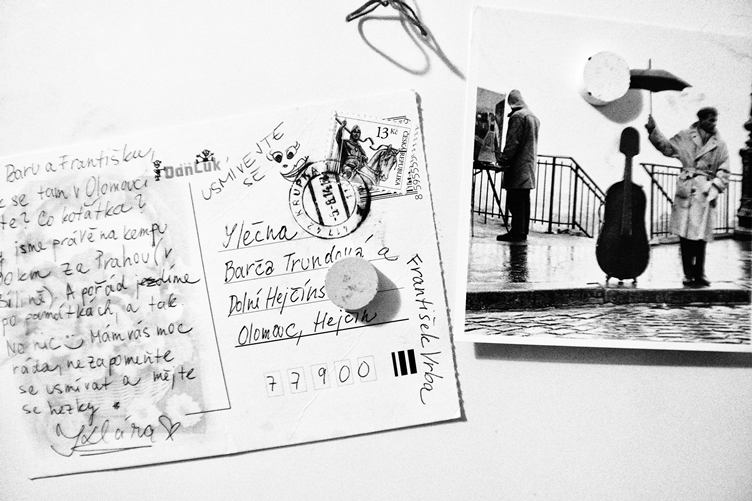 Baru a Františku,
se tam v Olomouci
te? Co koťátka?
jsme právě na kempu
km za Prahou (v
Bílině). A pořád jezdíme
po památkách, a tak.
No nic Mám vás moc
ráda, nezapomeňte
se usmívat a mějte
se hezky
Klára
DanCuk
USMÍVEJTE
SE
13 Kč
ČESKÁ REPUBLIKA
KRUPKA
417 42
Slečna
Barča Trundová a
František Vrba
Dolní Hejčíns
Olomouc, Hejčín
77900